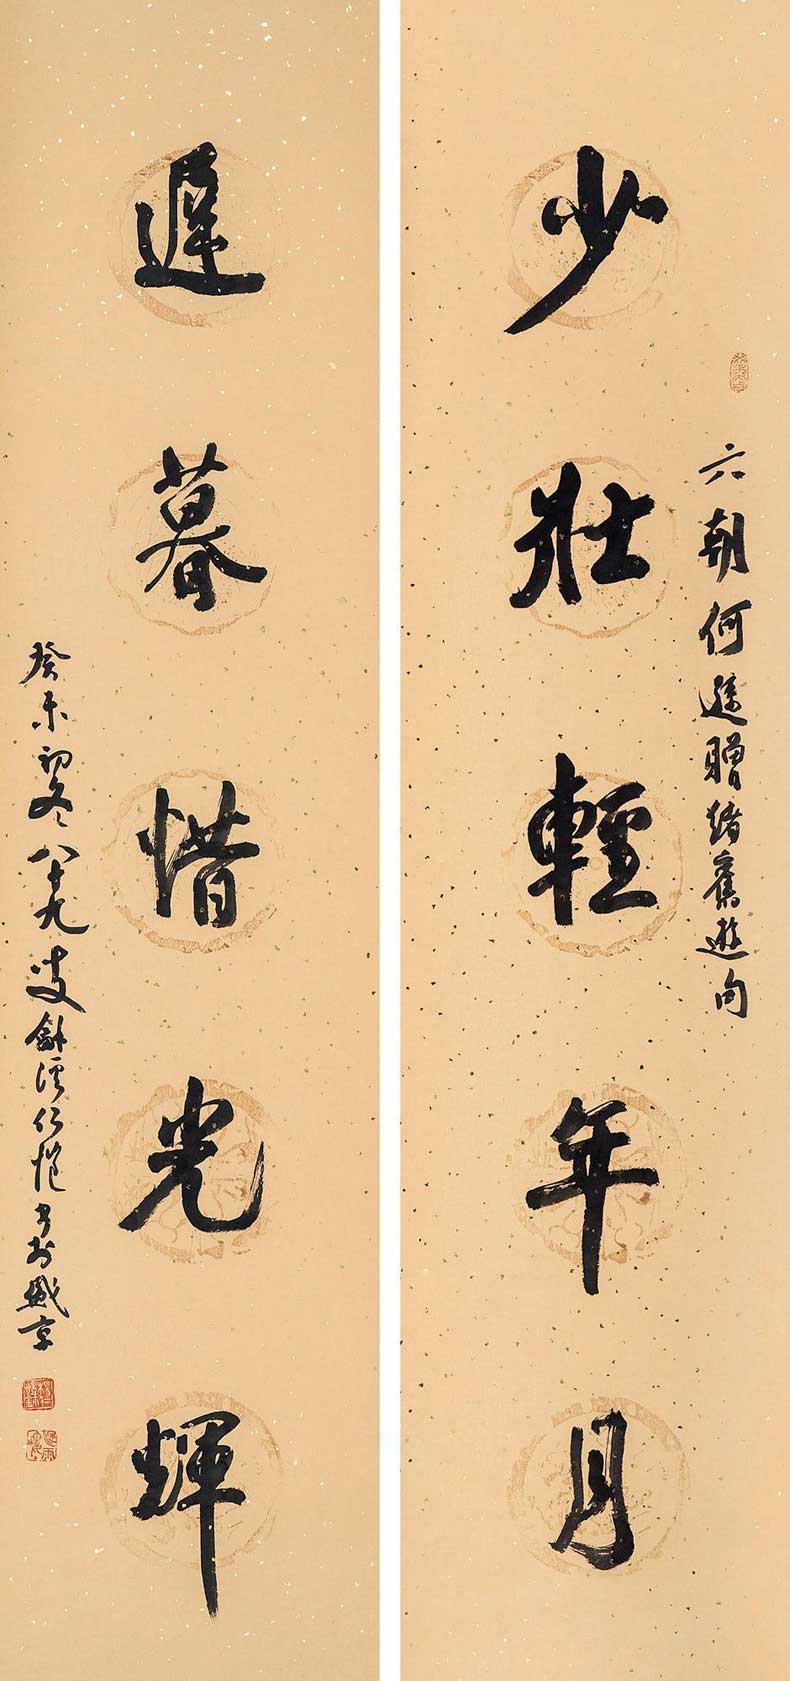 少壯輕年月
六朝何遜贈諸舊遊句
遲暮惜光輝
癸未初冬八十九叟龢溪仁愷書於盛京